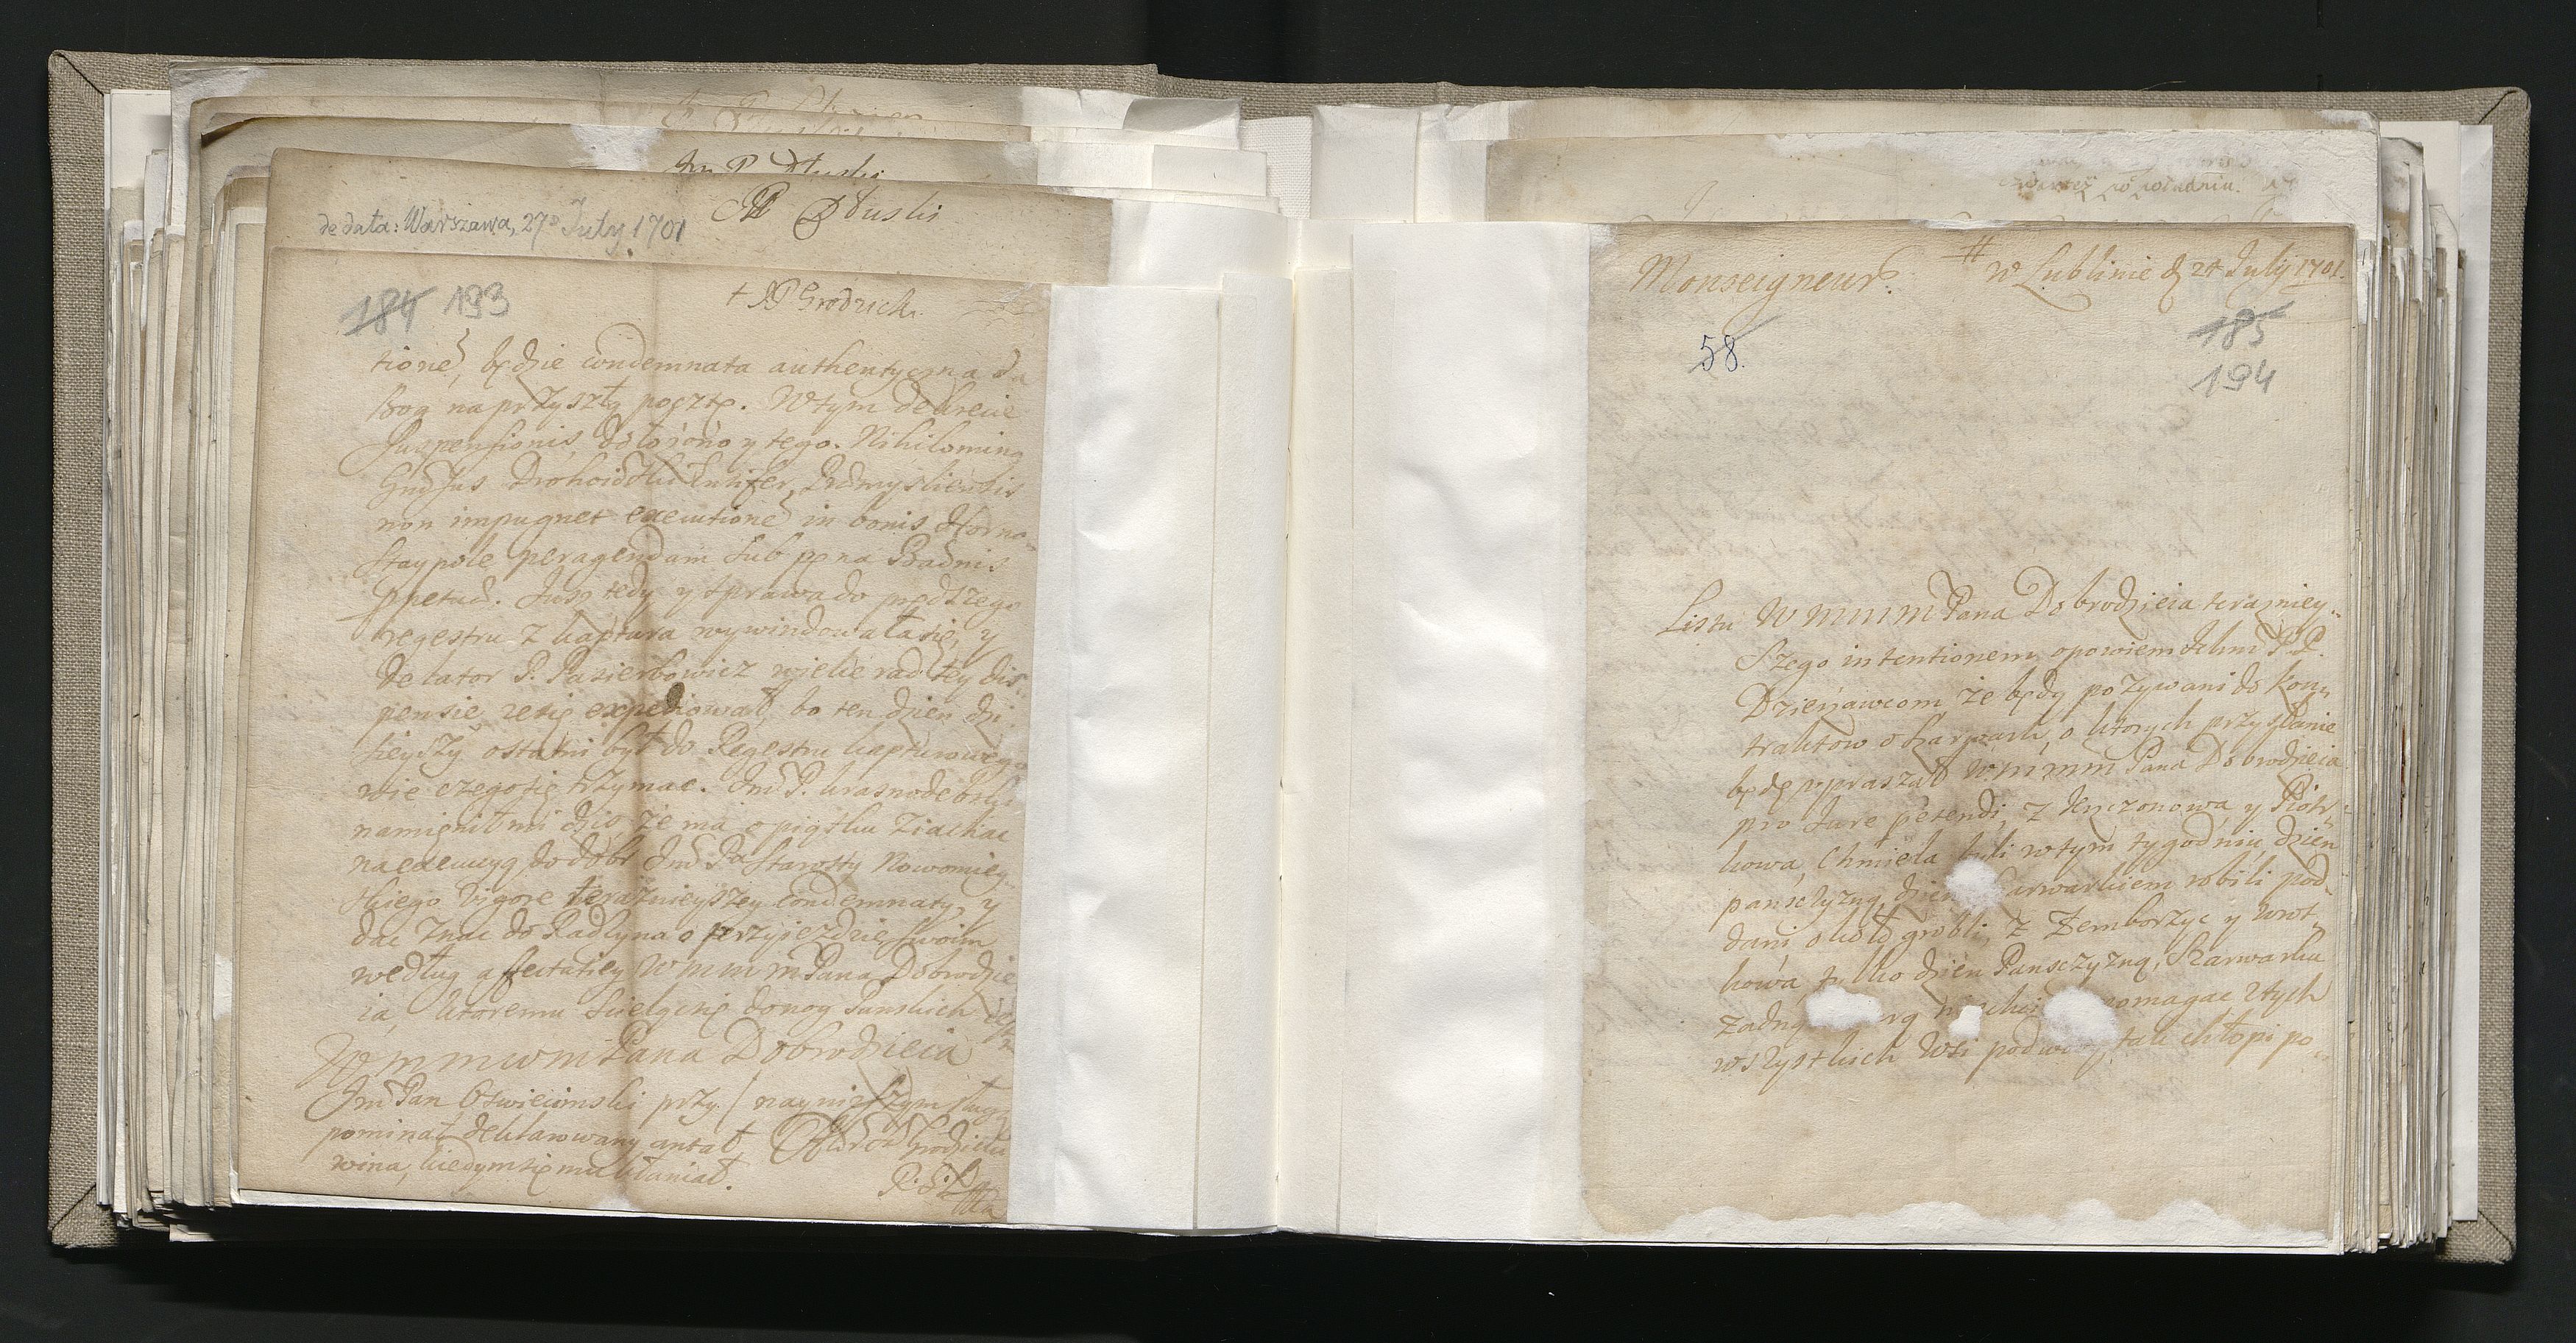 Im P. Dłuski
de data: Warszawa, 27 July 1701
JP Dłuski
184 193
+ JP Grodzick.
tione, będzie condemnata authentyczna da
Bog na przyszłą pocztę. W tym dekrecie
Suspensionis, dołożono y tego. Nihilominq
Gnsus Drohoiowski Ensifer Prdmysliensis
non impugnet executione in bonis Horno-
staypole peragendam sub pęna Badnis
ppetuæ. Jusz tedy y sprawa do prędszego
regestru z kaptura wywindowała się, y
delator P. Pasierbowicz wielie rad tey dis-
pensie, ze się expediował, bo ten dzien dzi-
sieyszy ostatni był do Regestru kapturowego
wie czego się trzymac. Im P. Krasnodębski
namienił mi dzis, że ma o piątku ziachac
na exemcyą do dobr Im Pa Starosty Nowomiey-
skiego vigore teraznieyszey condemnaty, y
dac znac do Radzyna o przyiezdzie swoim
według affectatiey W m m m Pana Dobrodzie
ia, ktoremu scielę się do nog Panskich
W m m w m Pana Dobrodzieia
Im Pan Oswiecimski przy- / naynizszym sługą
pominał deklarowany antał
wina, kiedym się mu kłaniał.
Monseigneur.
# w Lublinie d 24 July 1701.
58.
185
194
Listu W m m m Pana Dobrodzieia terazniey-
szego intentionem opowiem Ichm P.P.
Dzierżawcom, że będą pozywani do kon-
traktow o szarwark, o ktorych przysłanie
będę upraszał W m m m Pana Dobrodzieia
pro Jure petendi, z Kręczonowa y Piotr-
kowa, Chmiela byli w tym tygodniu, dzien
panscyzną, dzien arwarkiem robili pod-
dani około grobli, z Zemborzyc y Wrot-
kowa, tylko dzien Panszczyzną, Szarwarku
zadną omagac z tych
wszystkich wsi podwo tak chłopi po-